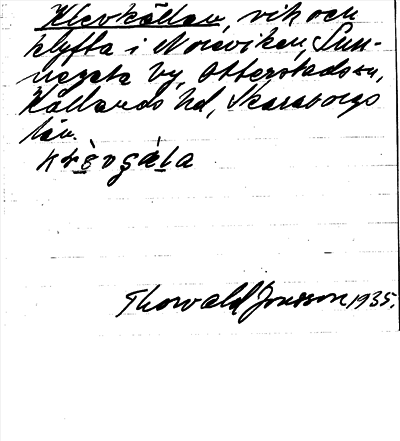 Klevkällan, vik och
klyfta i Norviken, Sun-
by, Otterstads sn,
Kållands hd, Skaraborgs
län.
Thorvald Jonsson 1935.